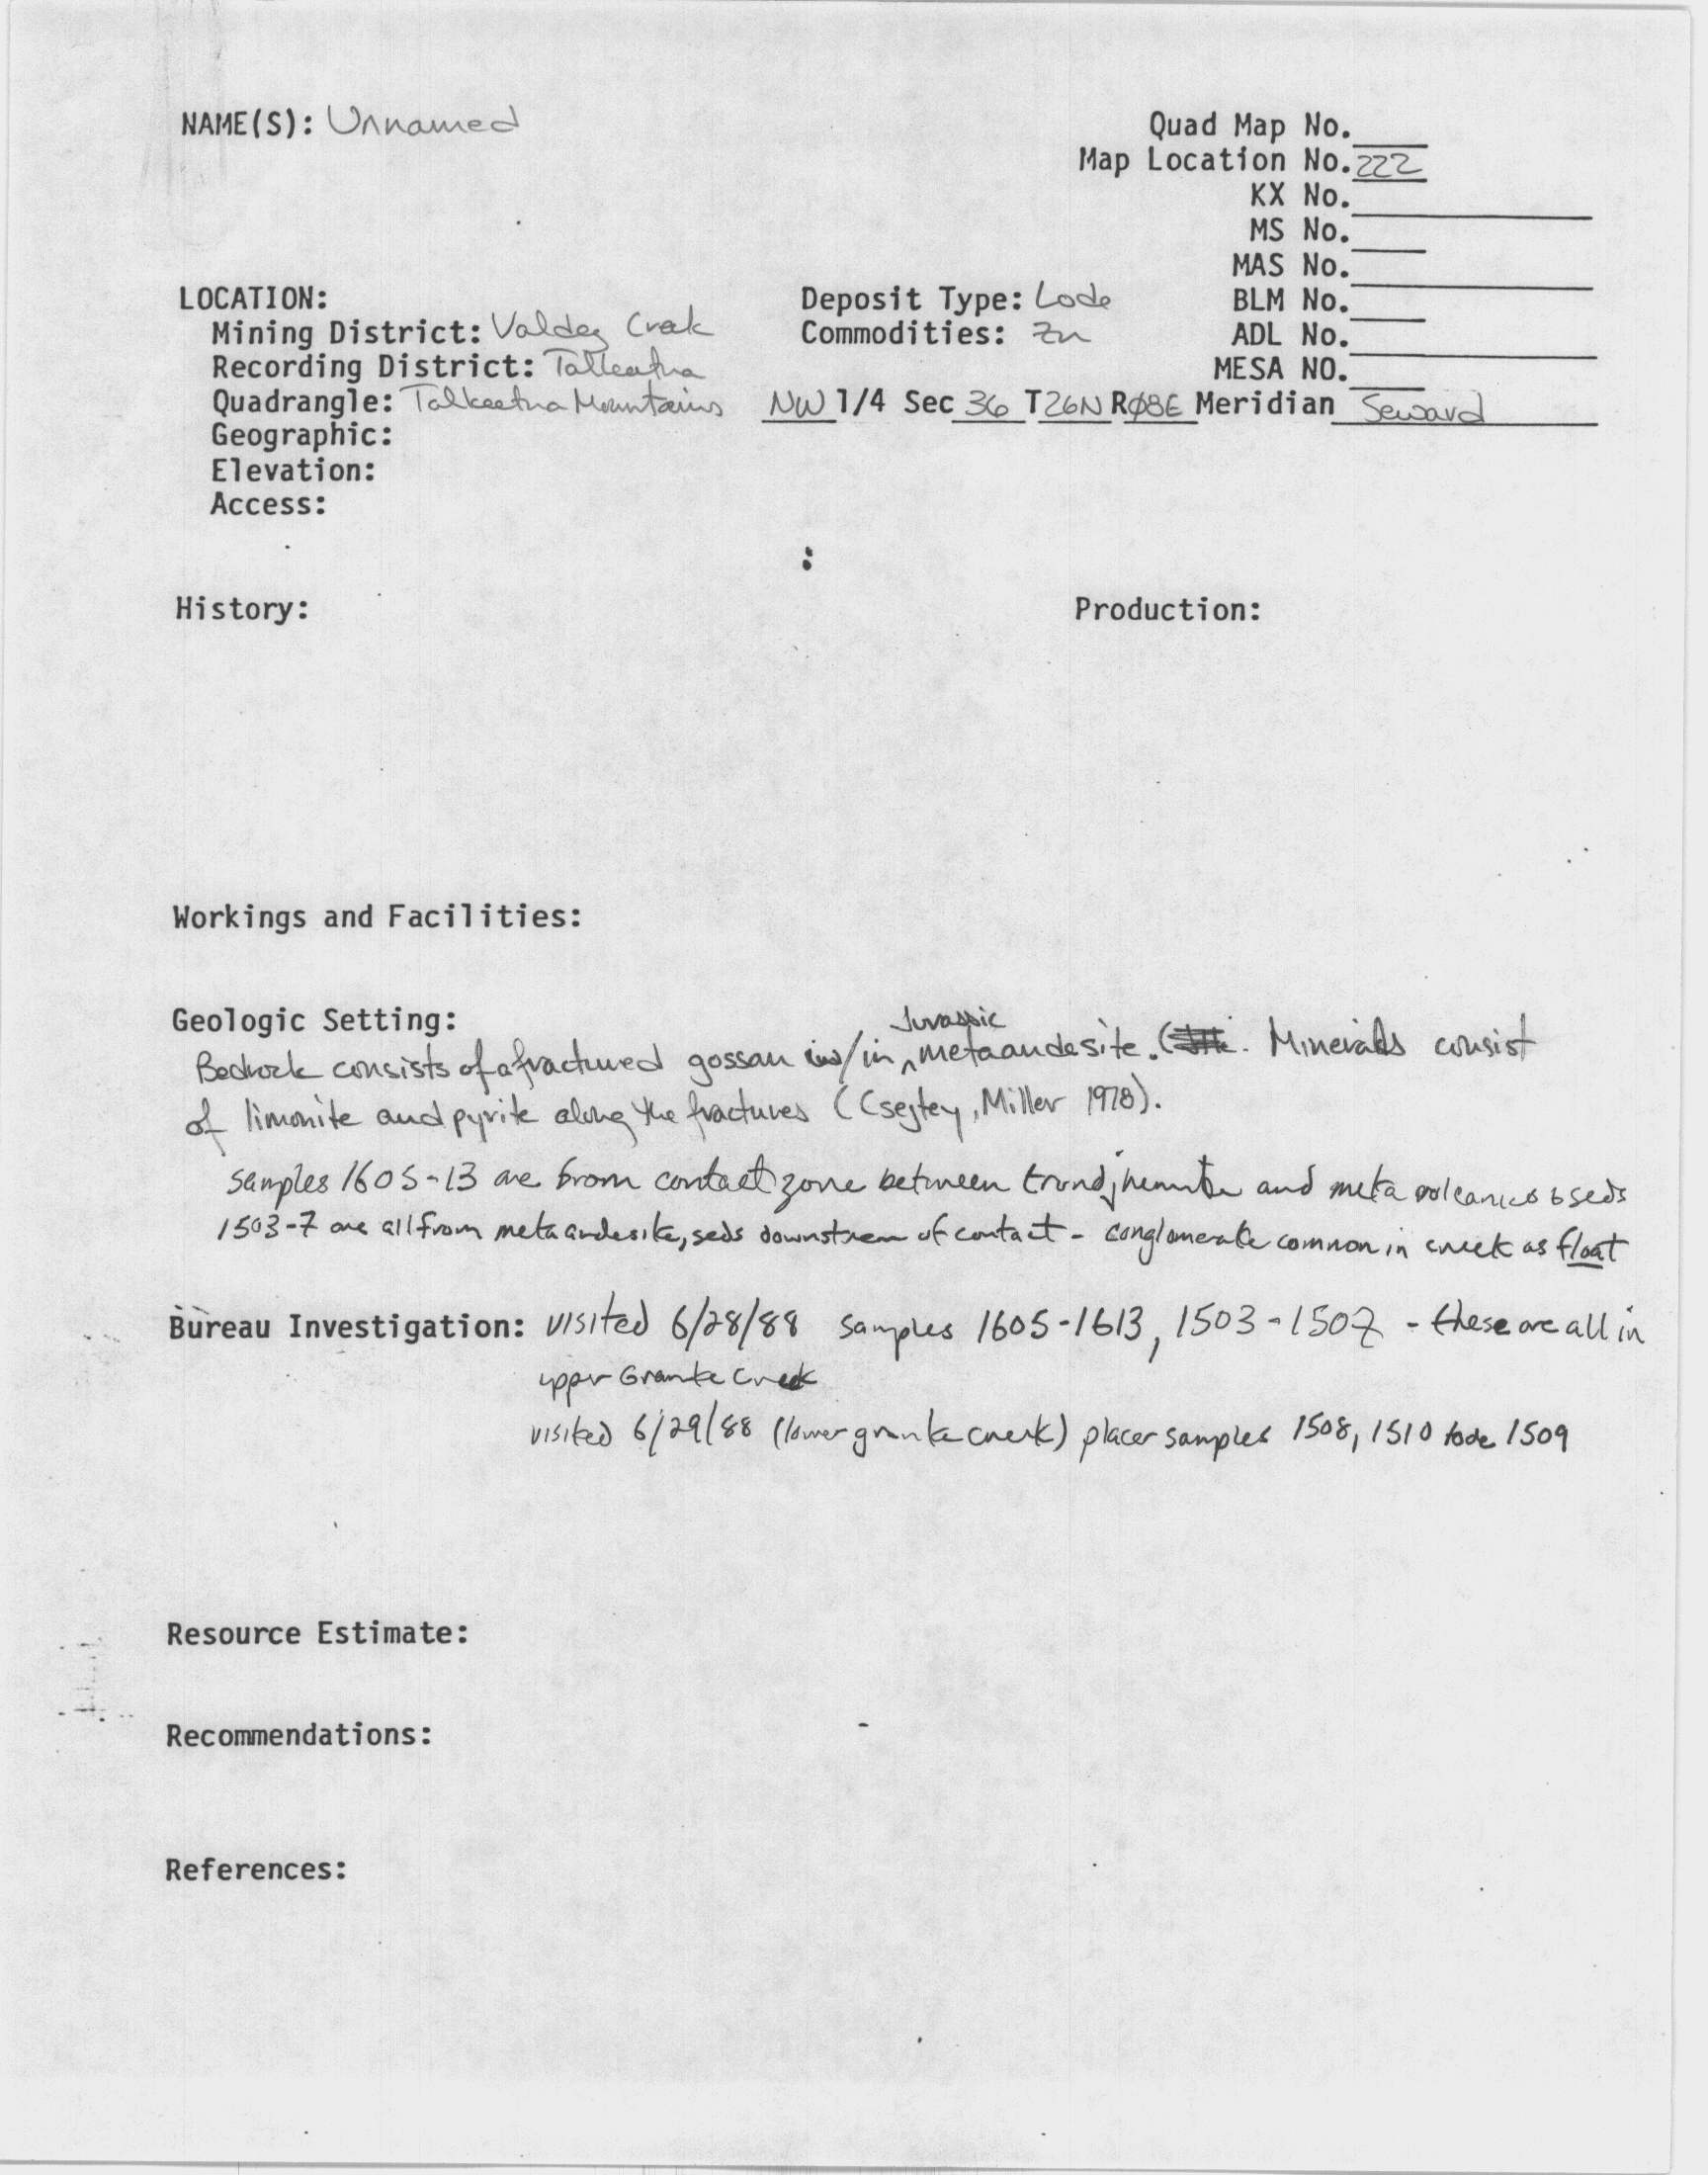 NAME(S): Unnamed
Quad Map No.
Map Location No. 222
KX No.
MS No.
MAS No.
LOCATION: Deposit Type: Lode BLM No.
Mining District: Valdez Creek Commodities: Zn ADL No.
Recording District: Talkeetna MESA NO.
Quadrangle: Talkeetna Mountains NW 1/4 Sec 36 T26N RØ8E Meridian Seward
Geographic:
Elevation:
Access:
:
History: Production:
Workings and Facilities:
Geologic Setting:
Jurassic
Bedrock consists of a fractured gossan /in ^ metaandesite. ( . Minerals consist
of limonite and pyrite along the fractures (Csejtey, Miller 1978).
samples 1605-13 are from contact zone between trondjhemite and meta volcanics & seds
1503-7 are all from meta andesite, seds downstream of contact - conglomerate common in creek as float
Bureau Investigation: visited 6/28/88 samples 1605-1613, 1503-1507 - these are all in
upper Granite Creek
visited 6/29/88 (lower granite creek) placer samples 1508, 1510 lode 1509
Resource Estimate:
Recommendations:
References: